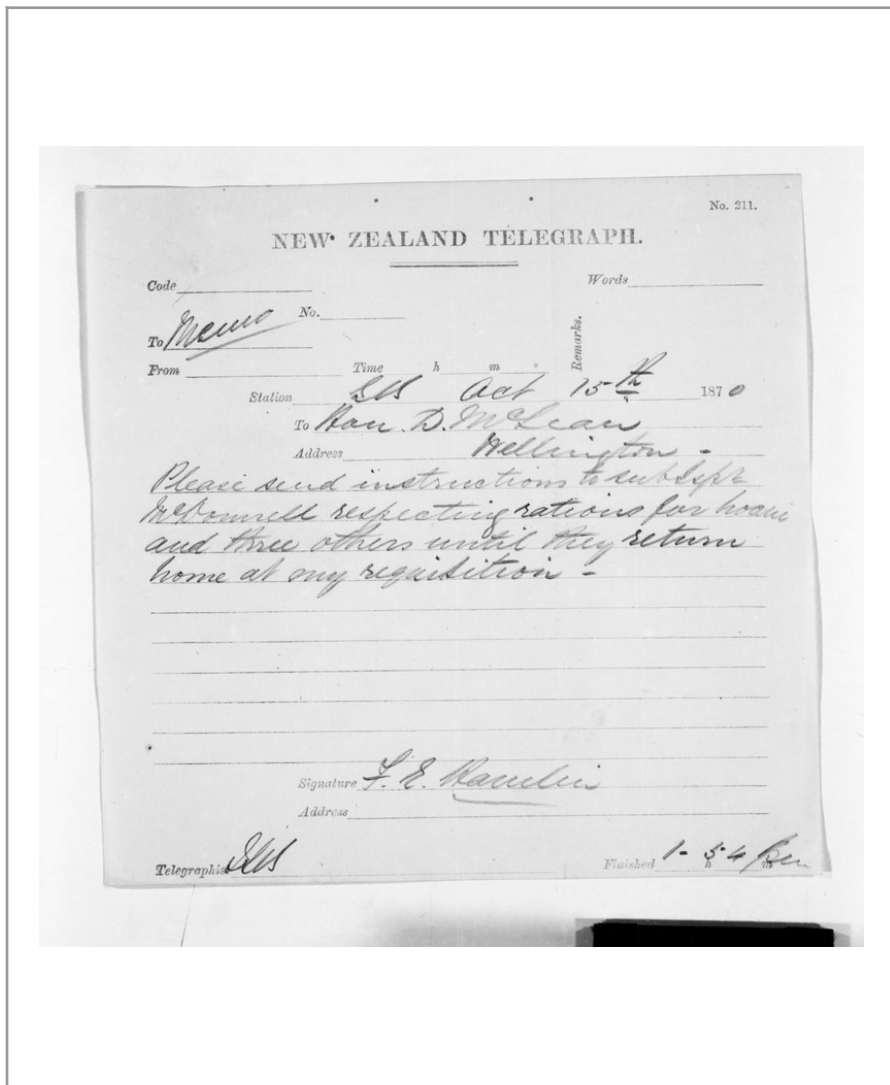 No. 211.
NEW ZEALAND TELEGRAPH.
Code Words
To Memo No.
Remarks.
From Time h m
Station Oct 15th 1870
To Hon. D. McLean
Address Wellington -
Please send instructions to sub Inspr
McDonnell respecting rations for hoani
and three others until they return
home at my requisition -
Signature F. E. Hamlin
Address
Telegraphist
Finished 1- 54 pm